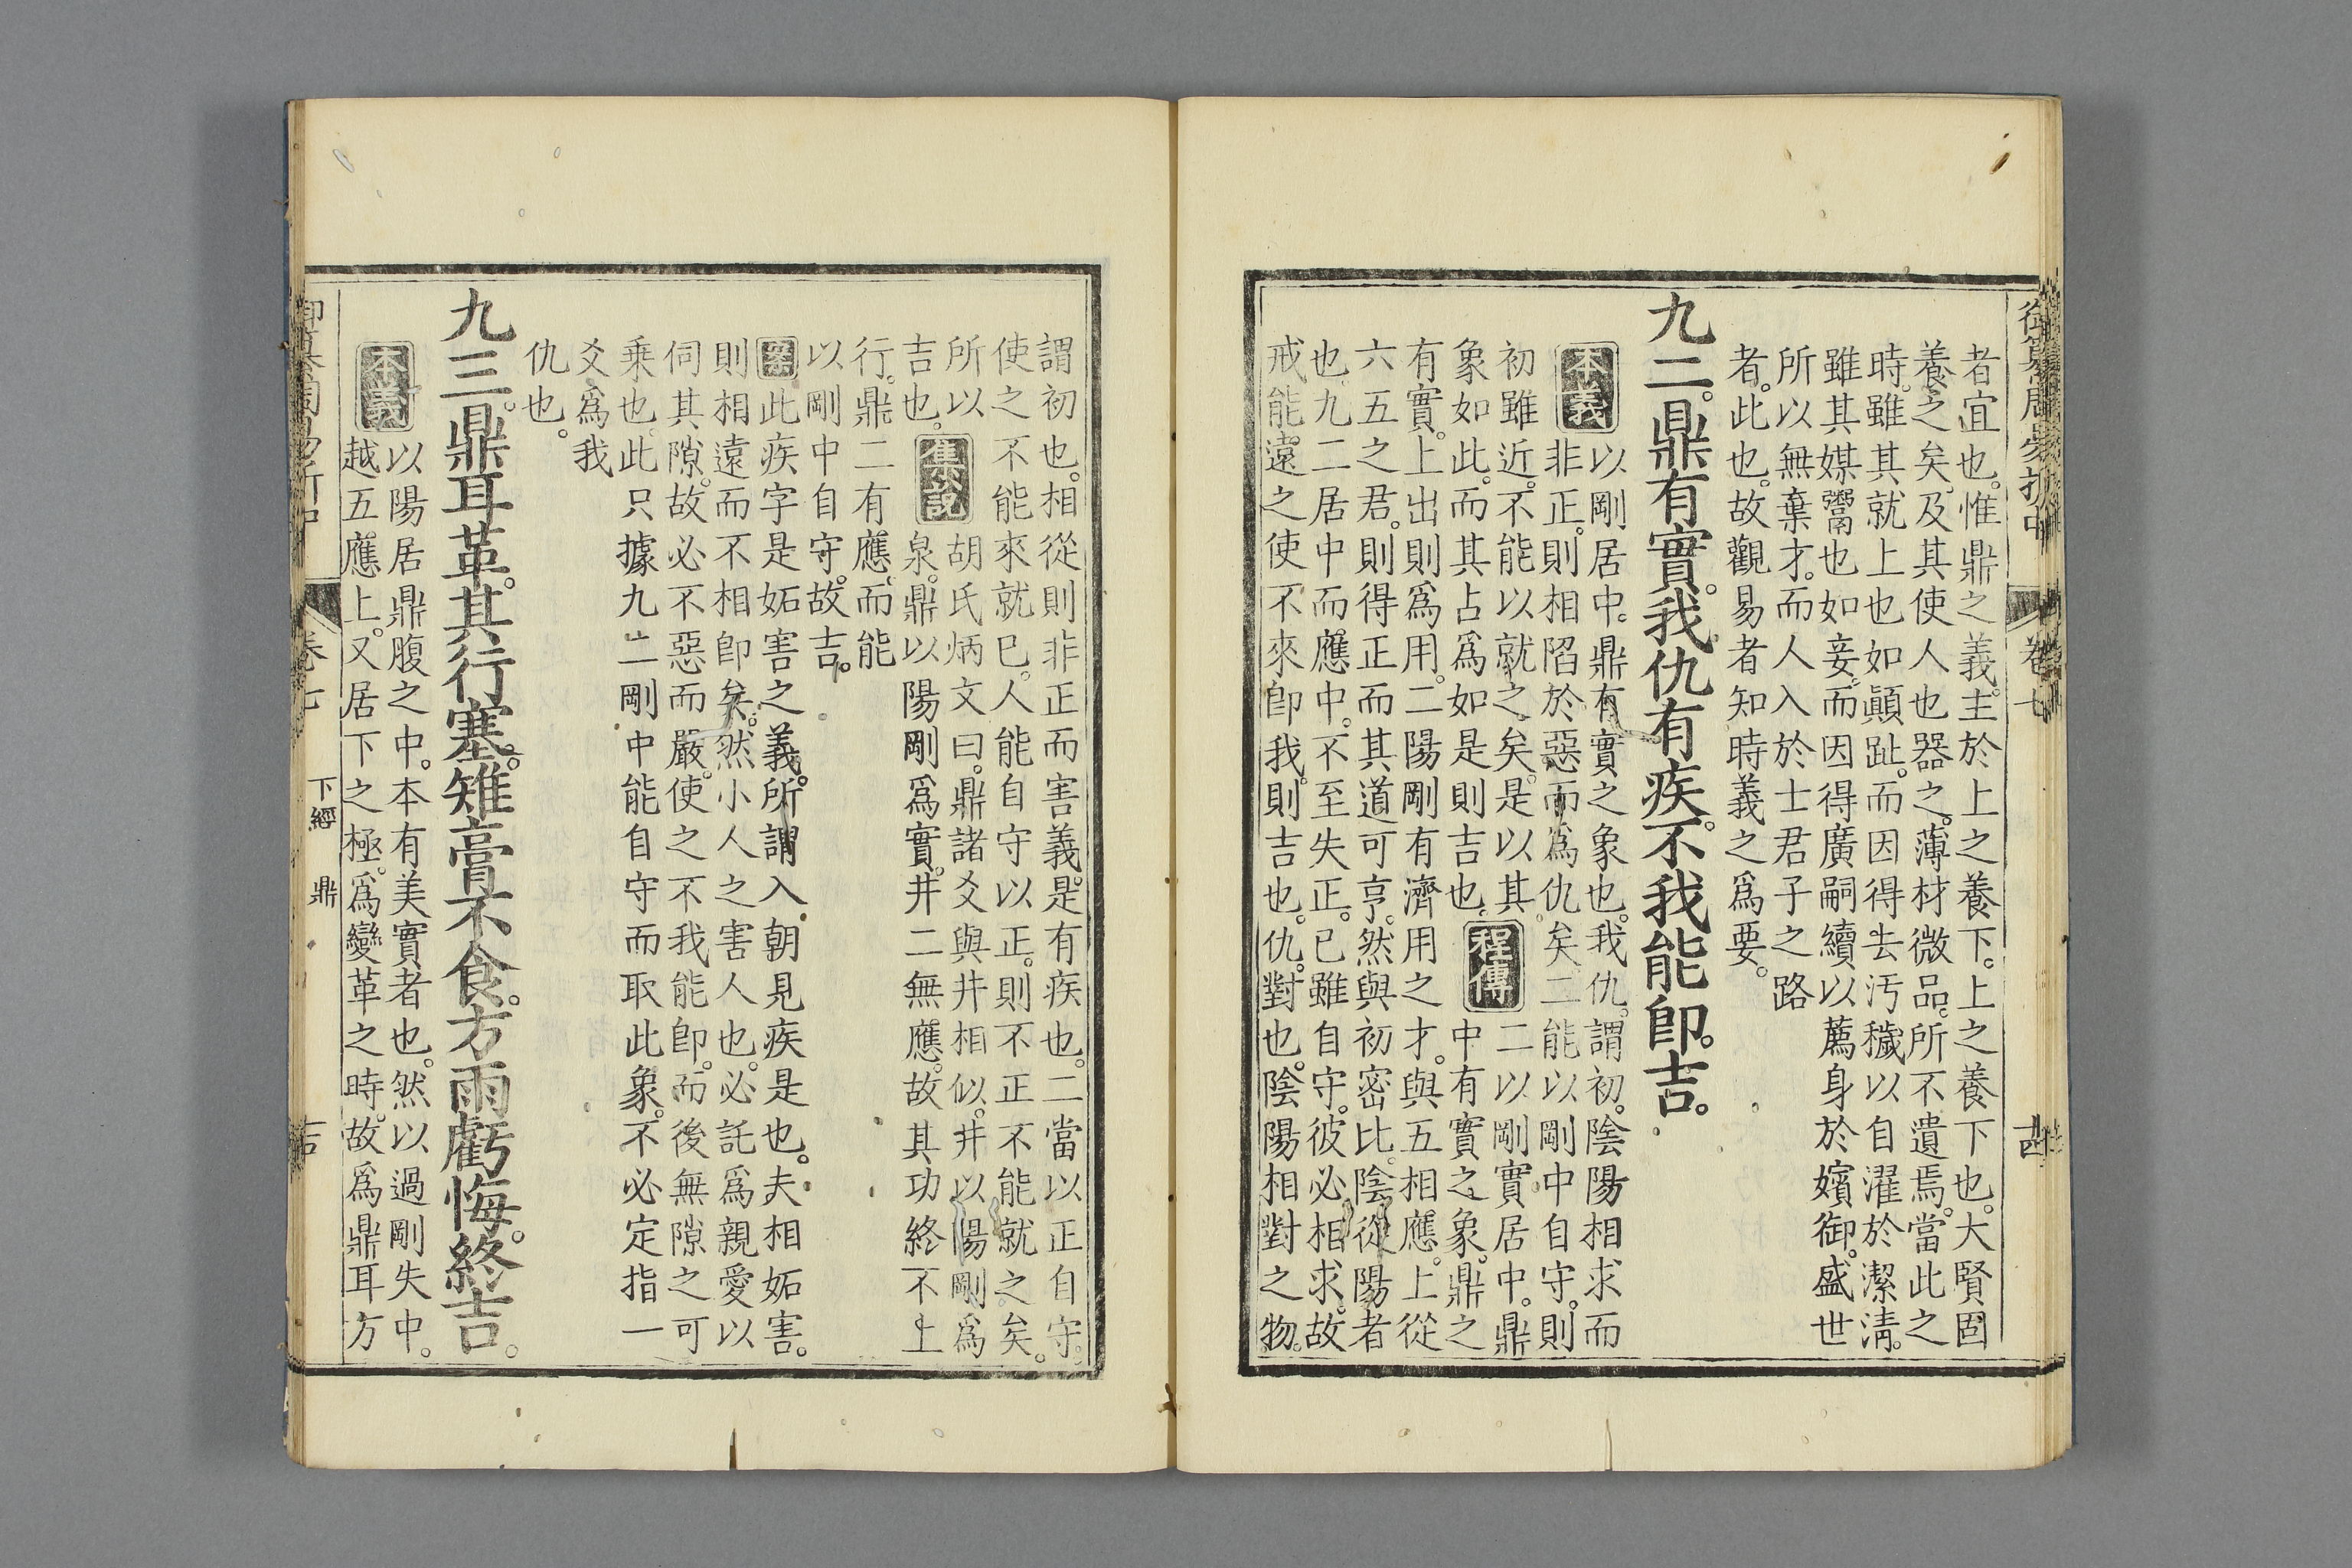 者宜也。惟鼎之義。主於上之養下。上之養下也。大賢固
養之矣。及其使人也器之。薄材微品。所不遺焉。當此之
時。雖其就上也如顚趾。而因得去汚穢以自濯於潔清。
雖其媒鬻也如妾。而因得廣嗣續以薦身於嬪御。盛世
所以無棄才。而人入於士君子之路
者。此也。故觀易者知時義之爲要。
九二。鼎有實。我仇有疾。不我能卽。吉。
本義
以剛居中。鼎有實之象也。我仇。謂初。陰陽相求而
非正。則相陷於惡而爲仇矣。二能以剛中自守。則
初雖近。不能以就之矣。是以其
象如此。而其占爲如是則吉也。
程傳
二以剛實居中。鼎
中有實之象。鼎之
有實。上出則爲用。二陽剛有濟用之才。與五相應。上從
六五之君。則得正而其道可亨。然與初密比。陰從陽者
也。九二居中而應中。不至失正。己雖自守。彼必相求。故
戒能遠之使不來卽我。則吉也。仇。對也。陰陽相對之物。
卷七
謂初也。相從則非正而害義。是有疾也。二當以正自守。
使之不能來就已。人能自守以正。則不正不能就之矣。
所以
吉也。
集說
胡氏炳文曰。鼎諸爻與井相似。井以陽剛爲
泉。鼎以陽剛爲實。井二無應。故其功終不上
行。鼎二有應。而能
以剛中自守。故吉。
案
此疾字是妬害之義。所謂入朝見疾是也。夫相妬害。
則相遠而不相卽矣。然小人之害人也。必託爲親愛以
伺其隙。故必不惡而嚴。使之不我能卽。而後無隙之可
乘也。此只據九二剛中能自守而取此象。不必定指一
爻爲我
仇也。
九三。鼎耳革。其行塞。雉膏不食。方雨虧悔。終吉。
本義
以陽居鼎腹之中。本有美實者也。然以過剛失中。
越五應上。又居下之極。爲變革之時。故爲鼎耳方
卷七
下經
鼎